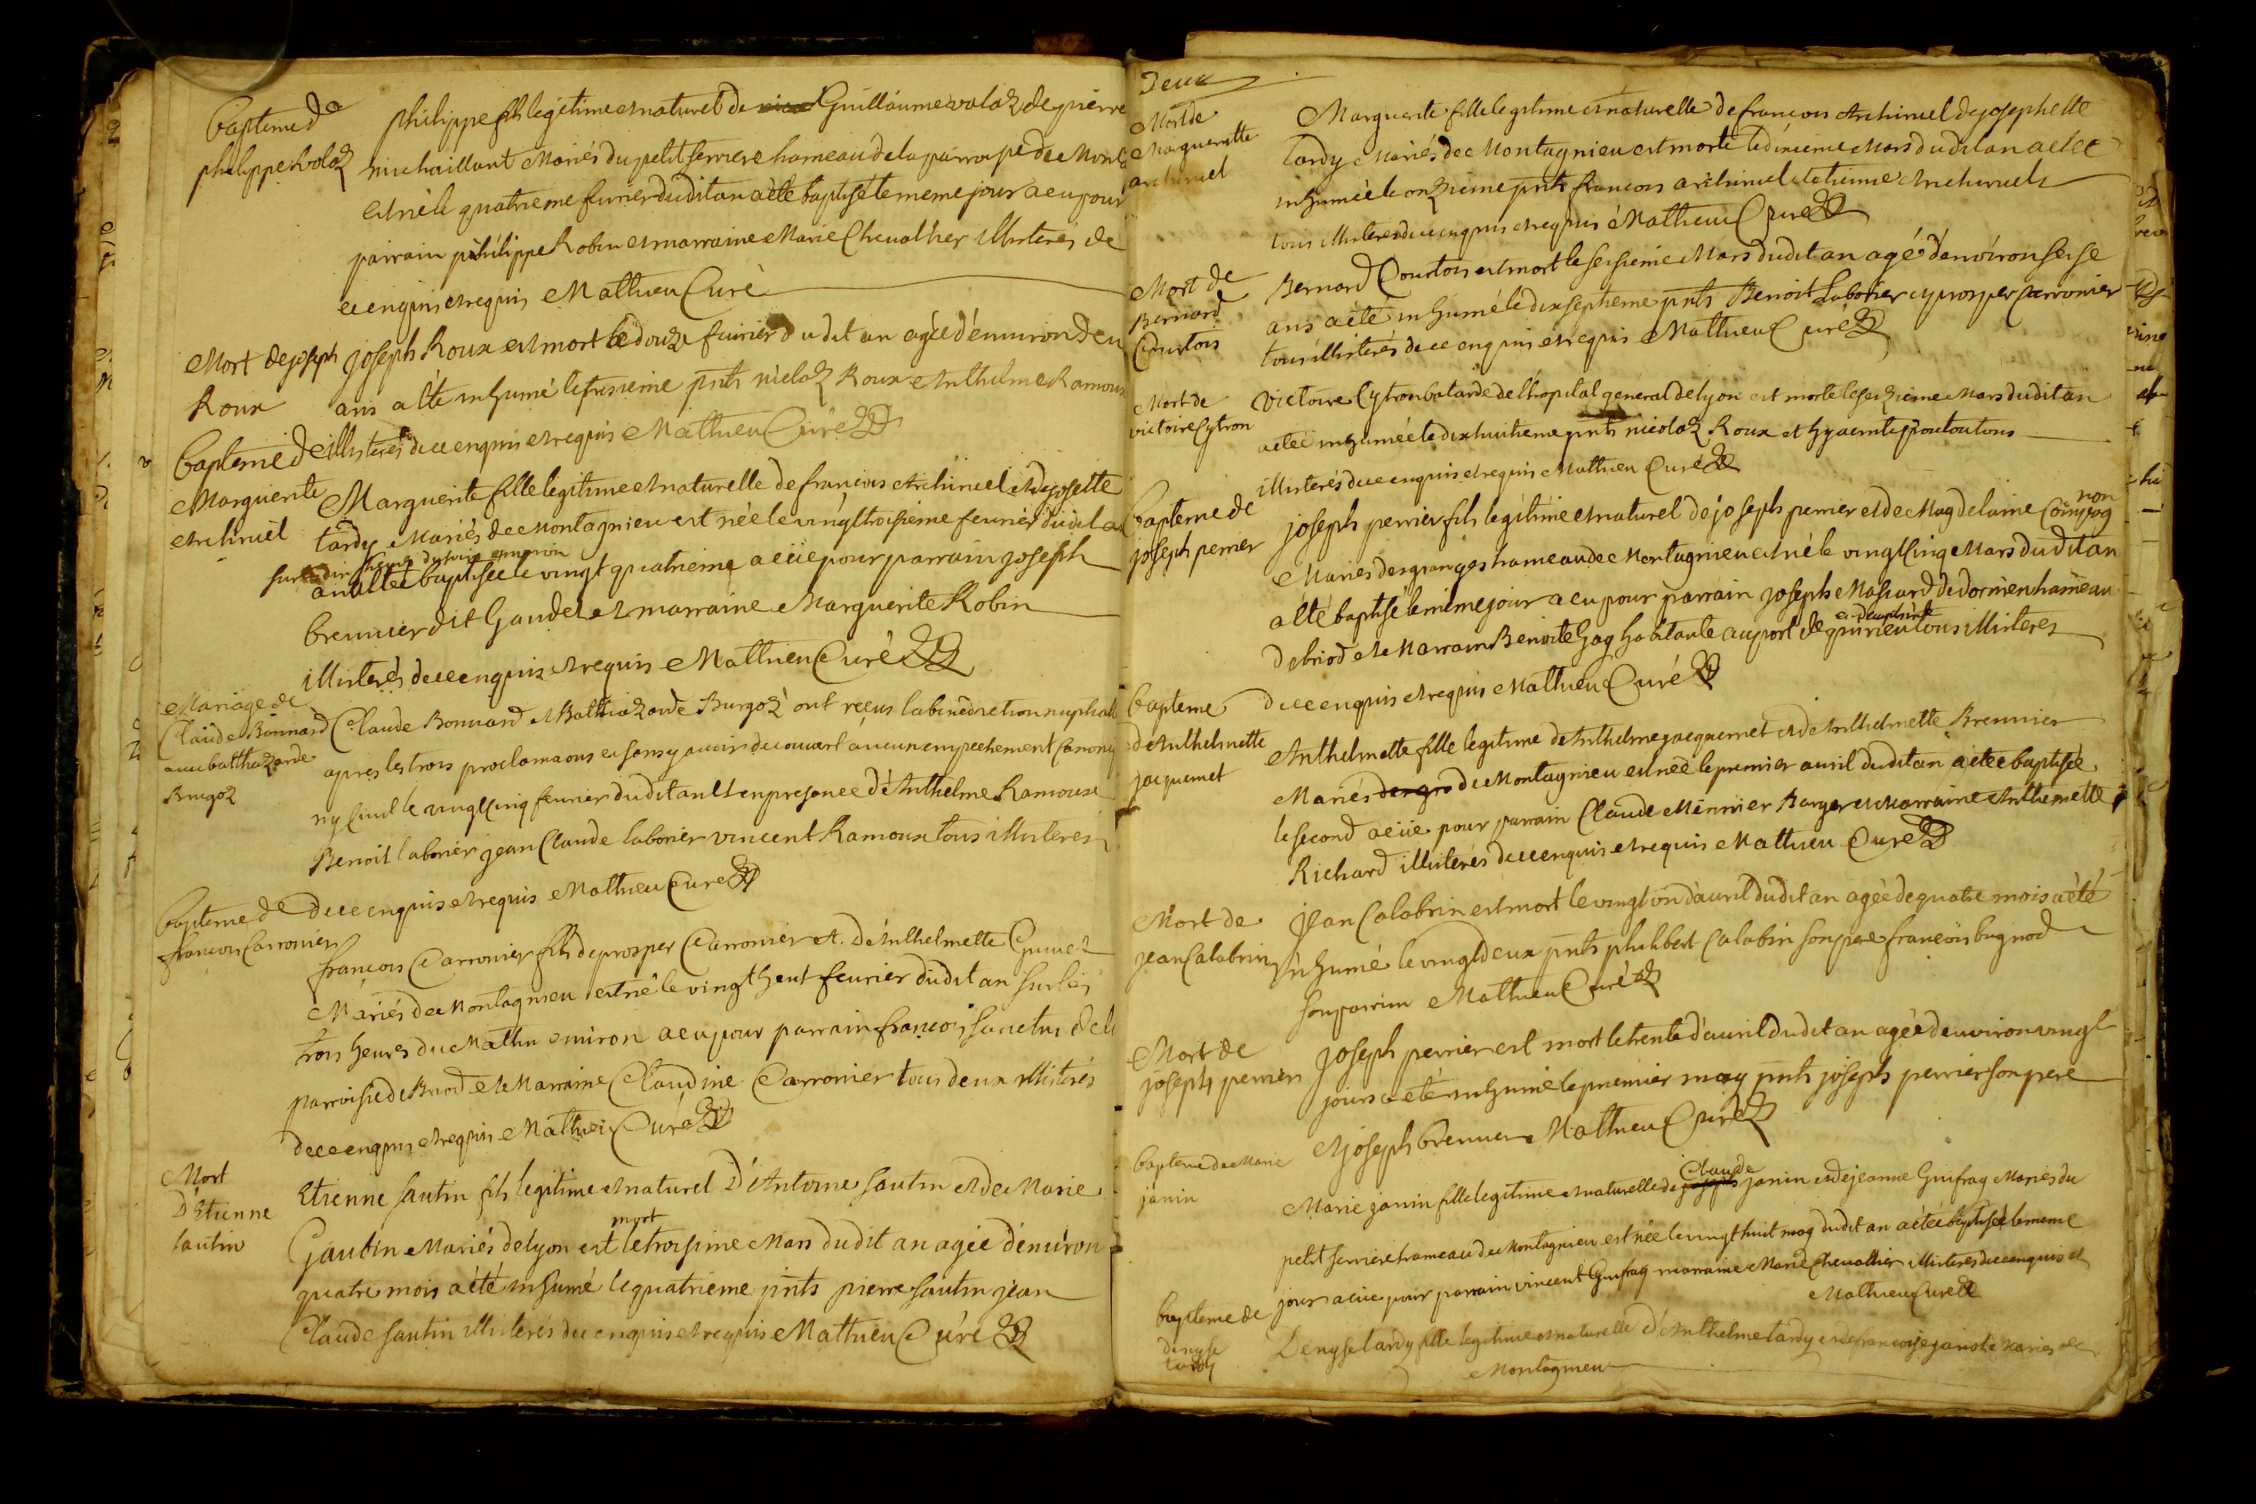 Bapteme de
philippe volaz
philippe fils legitime et naturel de Guillaume volaz de pierre
michaillant Mariés du petit ferriere hameau de la parroisse de Mont
est né le quatrieme fevrier dudit an a été baptisé le meme jour a eu pour
parrain philippe Robin et marraine Marie Chevallier illiterés de
ce enquis et requis Mathieu Curé
Mort de joseph
Roux
joseph Roux est mort le douze fevrier dudit an agée d'environ deux
ans a été inhumé le tresieme pnts nicolaz Roux Anthelme Ramoux
illiterés de ce enquis et requis Mathieu Curé
Bapteme de
Marguerite
Archinel
Marguerite fille legitime et naturelle de francois Archinel et de josette
tardy Mariés de Montagnieu est née le vingt troisieme fevrier dudit an
sur les dix heures du soir environ
a été baptisée le vingt quatrieme a eüe pour parrain joseph
Brennier dit Gaudet et marraine Marguerite Robin
illiterés de ce enquis et requis Mathieu Curé
Mariage de
Claude Bonnard
avec balthazarde
Burgoz
Claude Bonnard et Balthazarde Burgoz ont reçus la benediction nuptiale
apres les trois proclamaons et sans y avoir decouvert aucun empechement canonique
ny civil le vingt cinq fevrier dudit an et en presence d'Anthelme Ramoux
Benoit laborier jean Claude laborier vincent Ramoux tous illiterés
de ce enquis et requis Mathieu Curé
Bapteme de
francois Carronier
francois Carronier fils de prosper Carronier et d'Anthelmette Guinet
Mariés de Montagnieu est né le vingt heut fevrier dudit an sur les
trois heures du Matin environ a eu pour parrain francois Sanctus de la
parroisse de Briod et la Marraine Claudine Carronier tous deux illiterés
de ce enquis et requis Mathieu Curé
Mort
D'Etienne
sautin
Etienne sautin fils legitime et naturel D'Antoine sautin et de Marie
mort
Gautin Mariés de lyon est le troisieme Mars dudit an agée d'environ
quatre mois a été inhumé le quatrieme pnts pierre sautin jean
Claude sautin illiterés de ce enquis et requis Mathieu Curé
Deux
Mort de
Marguerite
archinel
Marguerite fille legitime et naturelle de francois Archinel de josephette
tardy Mariés de Montagnieu est morte le dixieme Mars dudit an a etée
inhumée le onzieme pnts francois archinel etienne Archinel
tous illiterés de ce enquis et requis Mathieu Curé
Mort de
Bernard
Courtois
Bernard Courtois est mort le seisieme Mars dudit an agé d'environ seise
ans a été inhumé le dixseptieme pnts Benoit Laborier et prosper Carronier
tous illiterés de ce enquis et requis Mathieu Curé
Mort de
victoire Cytron
Victoire Cytron batarde de l'hopital general de lyon est morte le seizieme Mars dudit an
a etée inhumée le dixhuitieme pnts nicolaz Roux et hyacinte tous
illiterés de ce enquis et requis Mathieu Curé
Bapteme de
joseph perrier
joseph perrier fils legitime et naturel de joseph perrier et de Magdelaine
Mariés des granges hameau de Montagnieu est né le vingt cinq Mars dudit an
a été baptisé le meme jour a eu pour parrain joseph Massard de dornien hameau
en dauphiné
de briod et la Marraine Benoite Gag habitante au port de quirieu tous illiterés
de ce enquis et requis Mathieu Curé
Bapteme
d'Anthelmette
jacquemet
Anthelmette fille legitime d'Anthelme jacquemet et d'Anthelmette Brennier
Mariés de Montagnieu est née le premier avril dudit an a etée baptisée
le second a eüe pour parrain Claude Mennier Berger et Marraine Anthelmette
Richard illiterés de ce enquis et requis Mathieu Curé
Mort de
jean Calabrin
jean Calabrin est mort le vingt un d'avril dudit an agée de quatre mois a été
inhumé le vingt deux pnts philibert Calabrin son pere francois bugnod
son parrain Mathieu Curé
Mort de
joseph perrier
joseph perrier est mort le trente d'avril dudit an agée d'environ vingt
jours a été inhumé le premier may pnts joseph perrier son pere
et joseph brennier Mathieu Curé
Bapteme de Marie
janin
Claude
Marie janin fille legitime et naturelle de joseph janin et de jeanne Guifray Mariés du
petit ferriere hameau de Montagnieu est née le vingt huit may dudit an a etée baptisée le meme
jour a eüe pour parrain vincent Guifray marraine Marie Chevallier illiterés de ce enquis et
Mathieu Curé
bapteme de
denyse
tardy
Denyse tardy fille legitime et naturelle d'Anthelme tardy et de francoise janiste Mariés de
Montagnieu